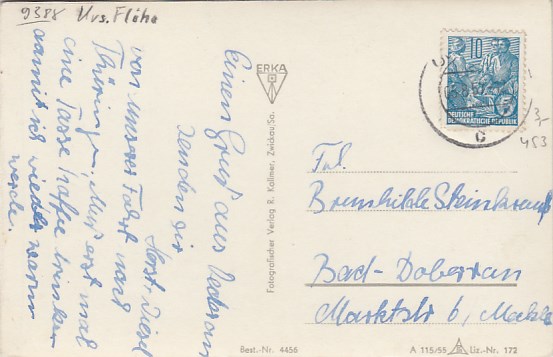 9388 Krs. Flöha
Einen Gruß aus Oederan
senden dir
Horst, Diesel
von unserer Fahrt nach
Thüringen. Muß erst mal
eine Tasse Kaffee trinken
damit ich wieder warm
werde.
ERKA
Fotografischer Verlag R. Kallmer, Zwickau/Sa.
10
DEUTSCHE
DEMOKRATISCHE REPUBLIK
c
3,-
453
Frl.
Brunhilde Steinkrauß
Bad-Doberan
Marktstr 6, Meckl.
Best.-Nr. 4456
A 115/55
Liz.-Nr. 172